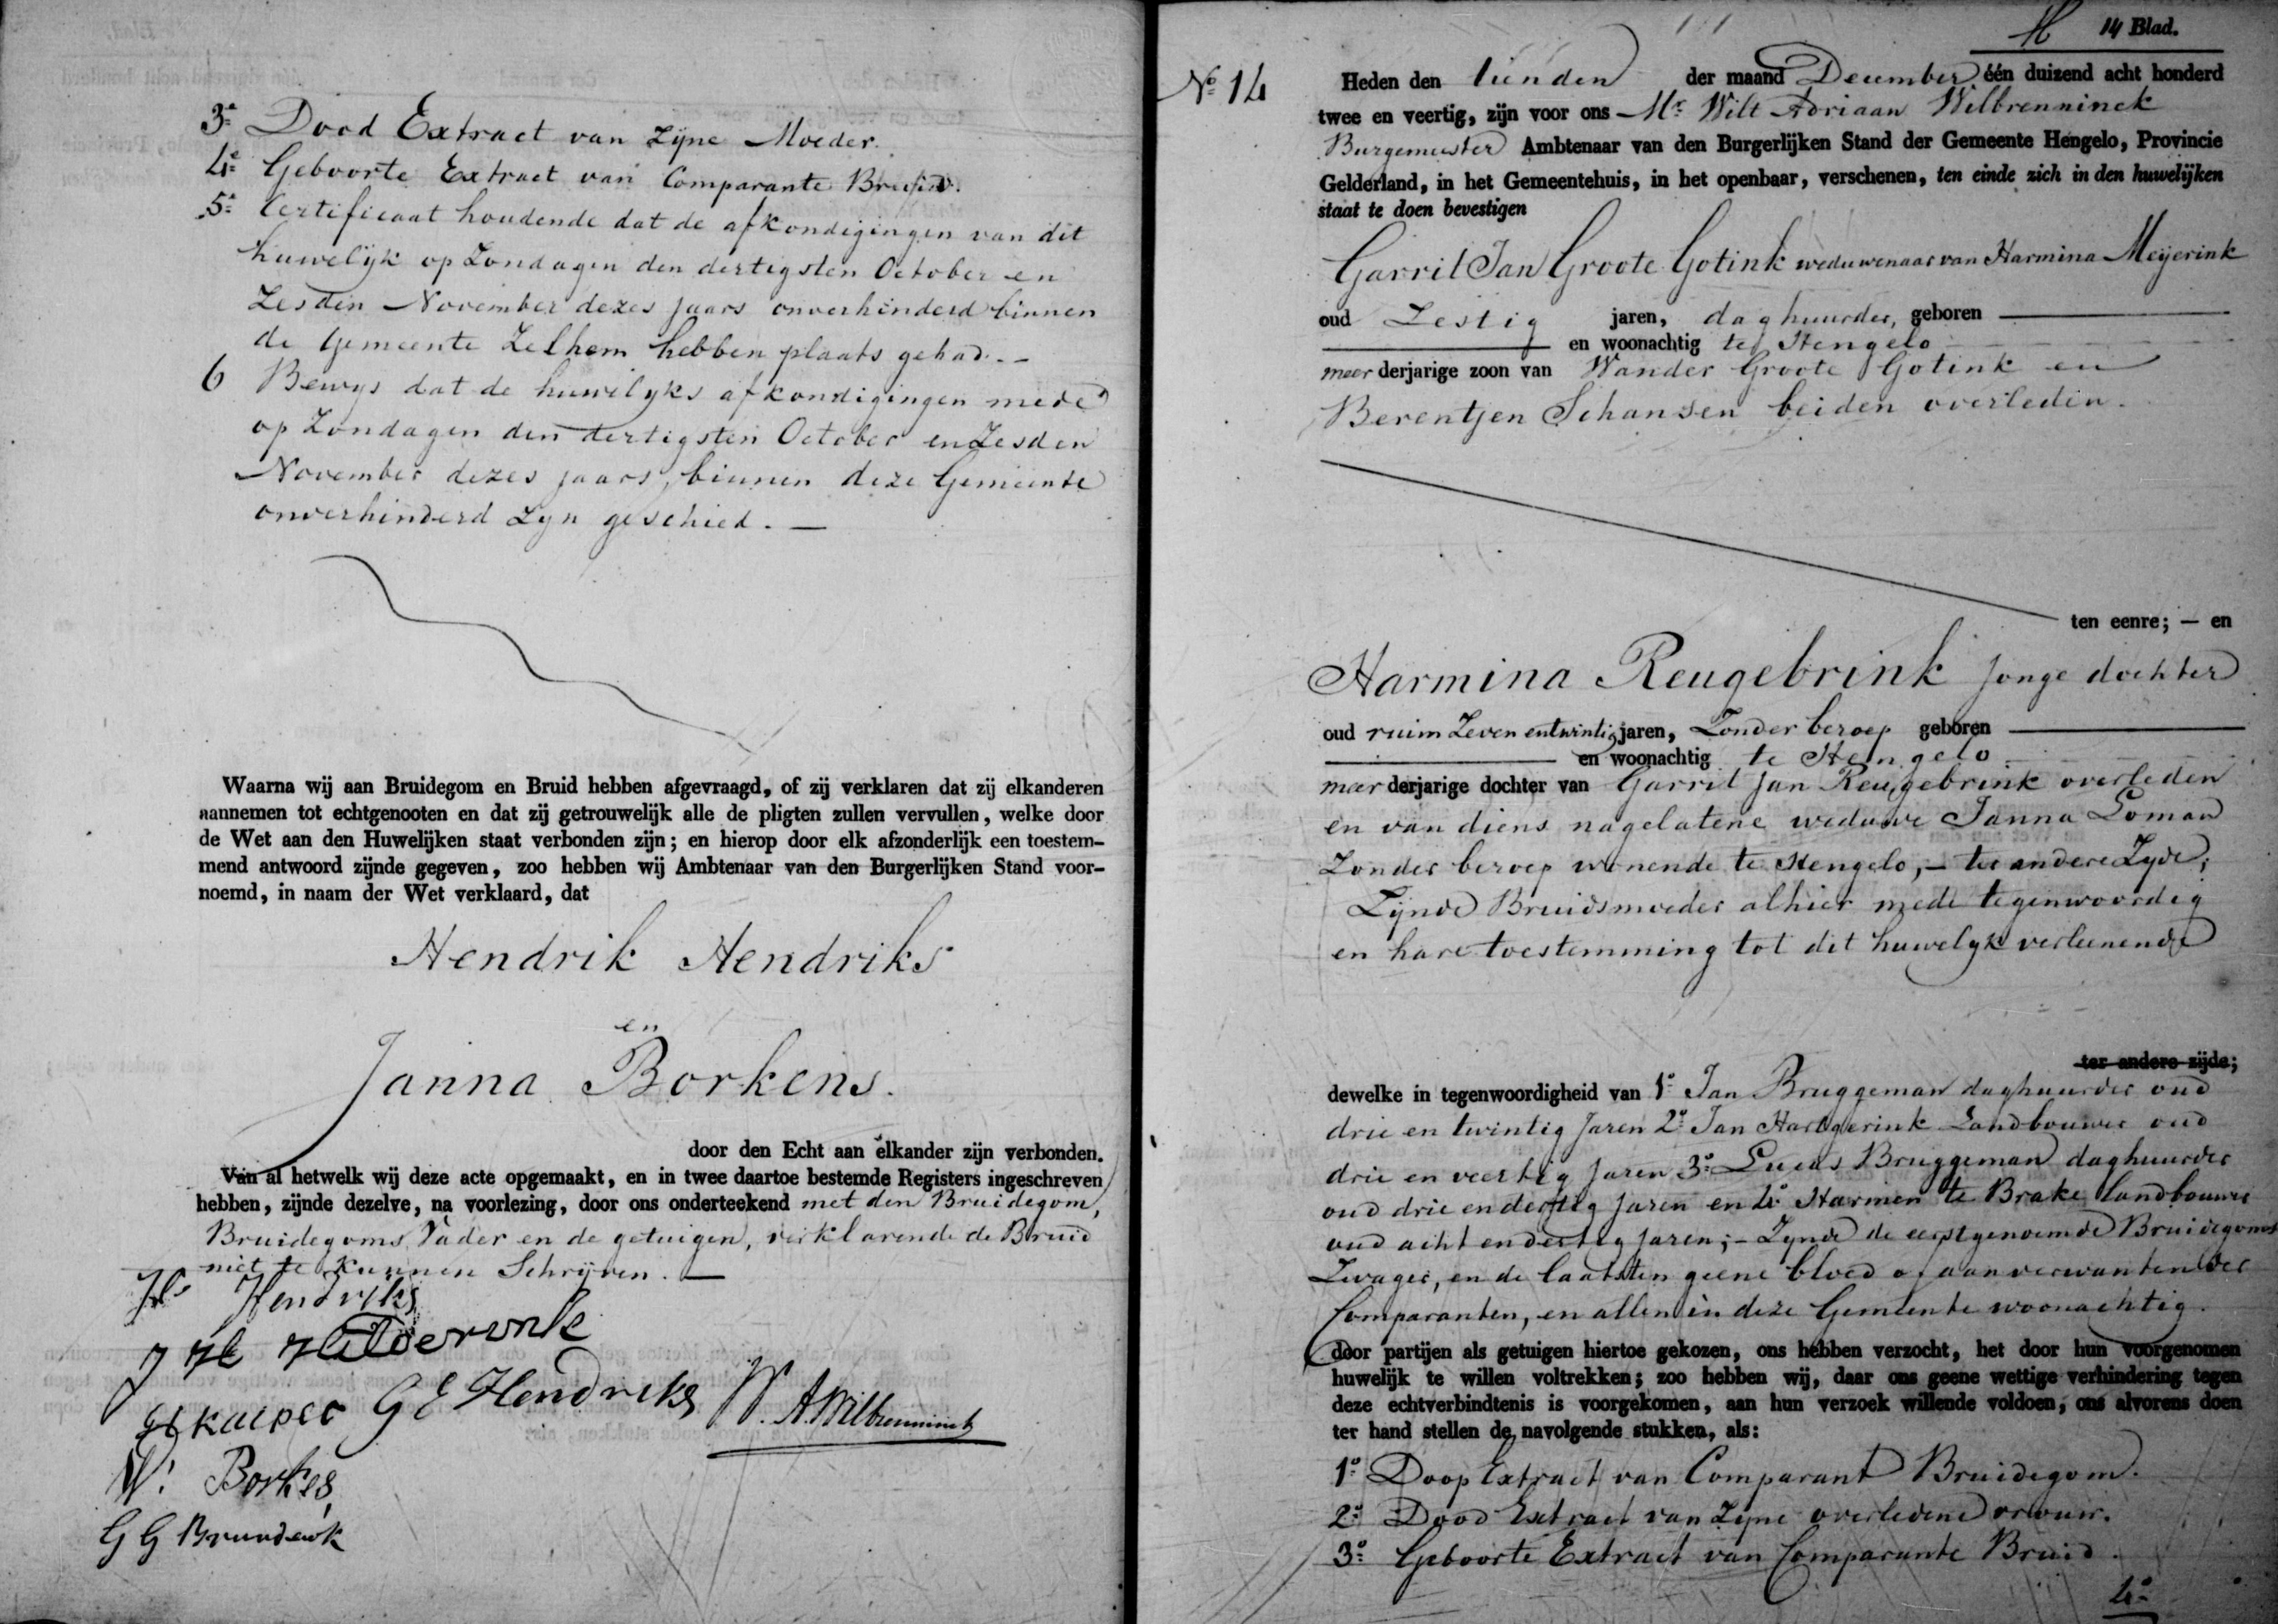 3º Dood Extract van zijne Moeder.
4º Geboorte Extract van Comparante Bruid.
5º Certificaat houdende dat de afkondigingen van dit
huwelijk op Zondagen den dertigsten October en
Zesden November dezes jaars onverhinderd binnen
de Gemeente Zelhem hebben plaats gehad. -
6 Bewys dat de huwelyks afkondigingen mede
op Zondagen den dertigsten October en Zesden
November dezes jaars, binnen deze Gemeente
onverhinderd zyn geschied. —
Waarna wij aan Bruidegom en Bruid hebben afgevraagd, of zij verklaren dat zij elkanderen
aannemen tot echtgenooten en dat zij getrouwelijk alle de pligten zullen vervullen, welke door
de Wet aan den Huwelijken staat verbonden zijn; en hierop door elk afzonderlijk een toestem-
mend antwoord zijnde gegeven, zoo hebben wij Ambtenaar van den Burgerlijken Stand voor-
noemd, in naam der Wet verklaard, dat
Hendrik Hendriks
en
Janna Borkens.
door den Echt aan elkander zijn verbonden.
Van al hetwelk wij deze acte opgemaakt, en in twee daartoe bestemde Registers ingeschreven
hebben, zijnde dezelve, na voorlezing, door ons onderteekend met den Bruidegom,
Bruidegoms Vader en de getuigen, verklarende de Bruid
niet te kunnen Schrijven. —
Hendriks
G E Hendreks
W. A. Wilbrenninck
W. Borkes
G G
14 Blad.
Nº 14
Heden den tienden der maand December één duizend acht honderd
twee en veertig, zijn voor ons Mr Wilt Adriaan Wilbrenninck
Burgemeester Ambtenaar van den Burgerlijken Stand der Gemeente Hengelo, Provincie
Gelderland, in het Gemeentehuis, in het openbaar, verschenen, ten einde zich in den huwelijken
staat te doen bevestigen
Garrit Jan Groote Gotink weduwenaar van Harmina Meijerink
oud Zestig jaren, daghuurder, geboren
en woonachtig te Hengelo
meerderjarige zoon van Wander Groote Gotink en
Berentjen Schansen beiden overleden.
ten eenre; — en
Harmina Reugebrink jonge dochter
oud ruim Zeven entwintig jaren, Zonder beroep geboren
en woonachtig te Hengelo
meerderjarige dochter van Garrit Jan Reugebrink overleden
en van diens nagelatene weduwe Janna Loman
Zonder beroep wonende te Hengelo, - ter andere Zyde;
Zijnde Bruidsmoeder alhier mede tegenwoordig
en hare toestemming tot dit huwelyk verleenende
ter andere zijde;
dewelke in tegenwoordigheid van 1º Jan Bruggeman daghuurder oud
drie en twintig Jaren 2º Jan Hartgerink Landbouwer oud
drie en veertig Jaren 3º Lucas Bruggeman daghuurder
oud drie en dertig Jaren en 4º Harmen te Brake landbouwer
oud acht en dertig Jaren; - Zynde de eerstgenoemde Bruidegoms
Zwager, en de laatsten geene bloed of aanverwanten der
Comparanten, en allen in deze Gemeente woonachtig.
door partijen als getuigen hiertoe gekozen, ons hebben verzocht, het door hun voorgenomen
huwelijk te willen voltrekken; zoo hebben wij, daar ons geene wettige verhindering tegen
deze echtverbindtenis is voorgekomen, aan hun verzoek willende voldoen, ons alvorens doen
ter hand stellen de navolgende stukken, als:
1º Doop Extract van Comparant Bruidegom.
2º Dood Extract van Zyne overledene vrouw.
3º Geboorte Extract van Comparante Bruid.
4º